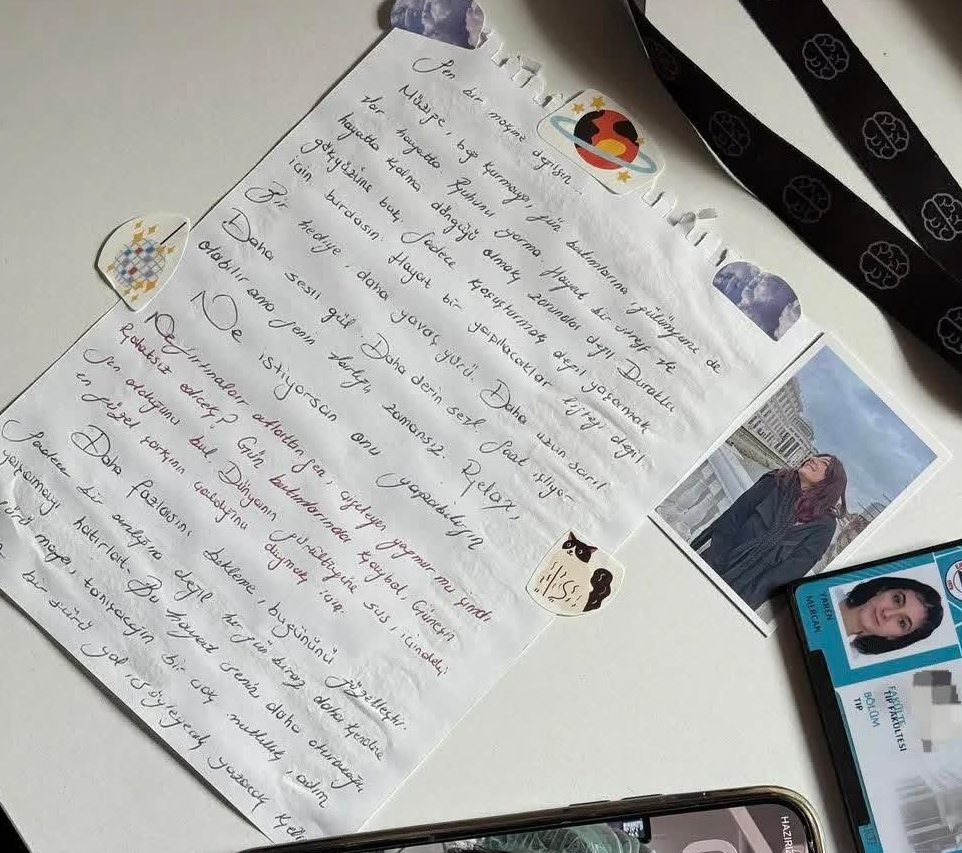 Sen bir makine değilsin...
Müzige, bağ kurmaya, gün batımlarına, gülümseme de
Var hayatta. Ruhunu yorma Hayat bir
hayatta kalma döngüsü olmak zorunda değil. Durakla
gökyüzüne bak. Sadece koşuşturmak değil yaşamak
için burdasın. Hayat bir yapılacaklar listesi değil
Bir hediye, daha yavaş yürü. Daha uzun sarıl
Daha sesli gül. Daha derin sev. Saat işliyor
olabilir ama senin varlığın zamansız. Relax,
Ne istiyorsan onu yapabilirsin
Ne fırtınalar atlattın sen, çiseleyen yağmur mu şimdi
Rahatsız edicek? Gün batımlarında kaybol, Güneşin
Sen olduğunu bul. Dünyanın gürültüsüne sus, içindeki
en güzel şarkının çaldığını duymak için.
Daha fazlasını bekleme, bugününü güzelleştir.
Sadece bir anlığına değil her gün biraz daha kendine
yaşamayı hatırlat. Bu hayat senin daha oturacağın
manzara, tanışacağın bir çok mutluluk, adım
bir sürü yol, söyleyecek yazacak
YAREN
MERCAN
FAKÜLTE
TIP FAKÜLTESİ
BÖLÜM
TIP